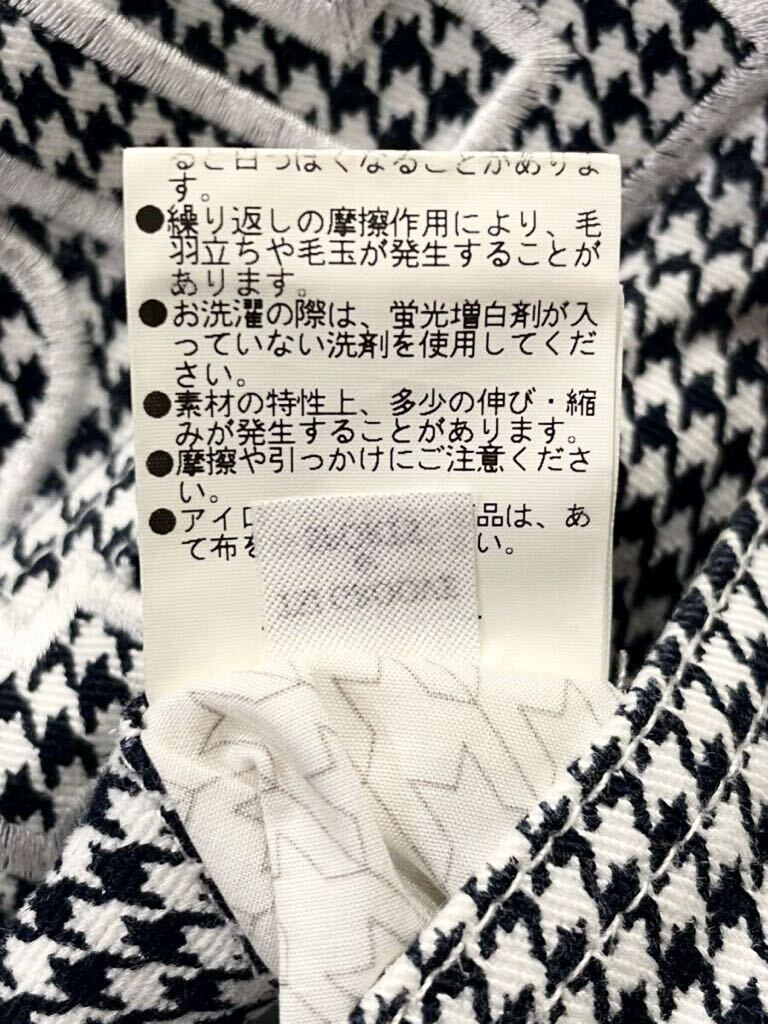 ると白っぽくなることがありま
す。
●繰り返しの摩擦作用により、毛
羽立ちや毛玉が発生することが
あります。
●お洗濯の際は、蛍光増白剤が入
っていない洗剤を使用してくだ
さい。
●素材の特性上、多少の伸び・縮
みが発生することがあります。
●摩擦や引っかけにご注意くださ
い。
●アイロ 品は、あ
て布を い。